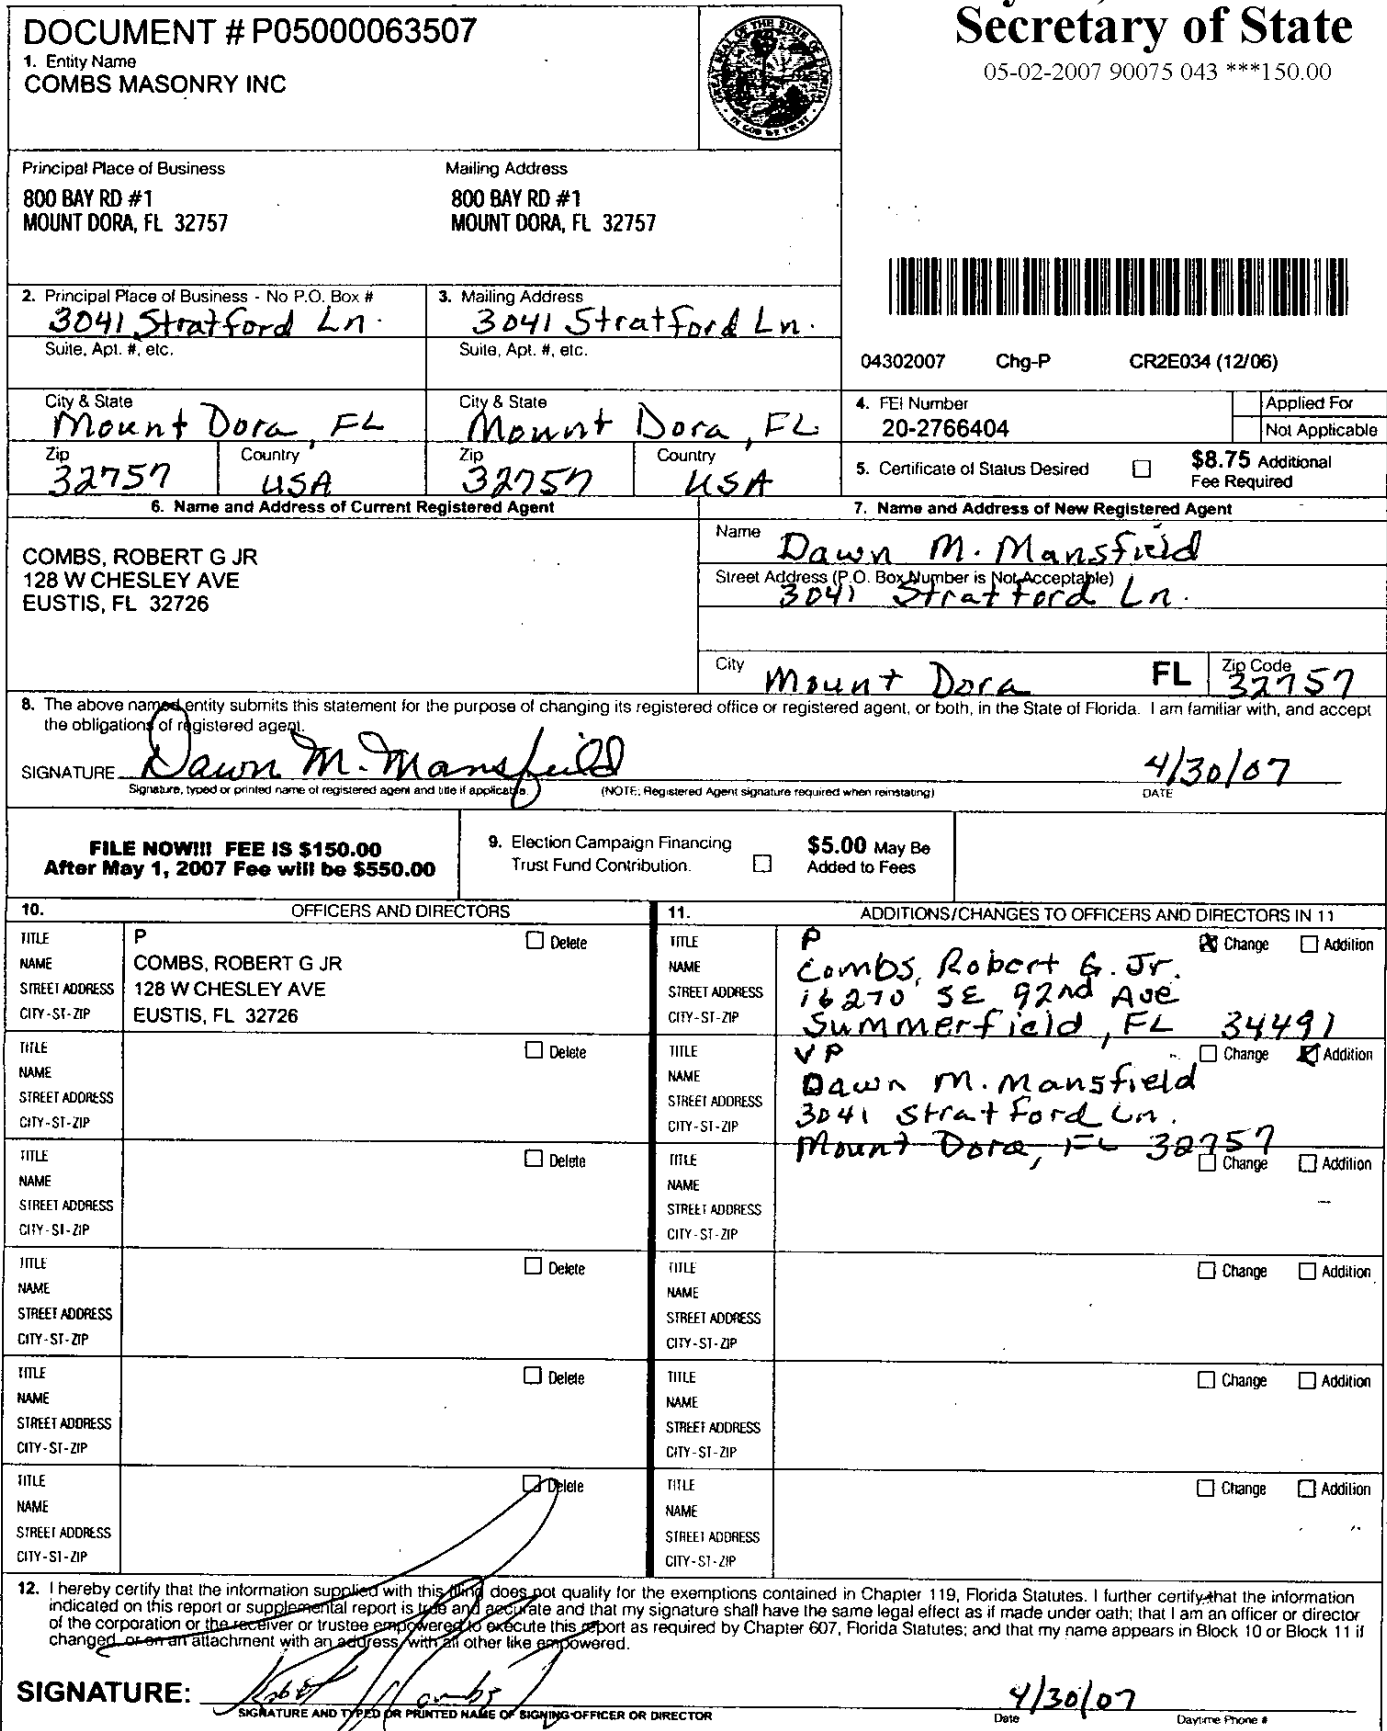 DOCUMENT # P05000063507
1. Entity Name
COMBS MASONRY INC
Secretary of State
05-02-2007 90075 043 ***150.00
Principal Place of Business
800 BAY RD #1
MOUNT DORA, FL 32757
Mailing Address
800 BAY RD #1
MOUNT DORA, FL 32757
2. Principal Place of Business - No P.O. Box #
3041 Stratford Ln.
3. Mailing Address
3041 Stratford Ln.
Suite, Apt. #, etc.
Suite, Apt. #, etc.
City & State
Mount Dora, FL
City & State
Mount Dora, FL
Zip
32757
Country
USA
Zip
32757
Country
USA
04302007 Chg-P CR2E034 (12/06)
4. FEI Number
20-2766404
Applied For
Not Applicable
5. Certificate of Status Desired
$8.75 Additional
Fee Required
6. Name and Address of Current Registered Agent
COMBS, ROBERT G JR
128 W CHESLEY AVE
EUSTIS, FL 32726
7. Name and Address of New Registered Agent
Name
Dawn M. Mansfield
Street Address (P.O. Box Number is Not Acceptable)
3041 Stratford Ln.
City
Mount Dora
FL
Zip Code
32757
8. The above named entity submits this statement for the purpose of changing its registered office or registered agent, or both, in the State of Florida. I am familiar with, and accept
the obligations of registered agent.
SIGNATURE Dawn M. Mansfield 4/30/07
Signature, typed or printed name of registered agent and title if applicable. (NOTE: Registered Agent signature required when reinstating) DATE
FILE NOW!!! FEE IS $150.00
After May 1, 2007 Fee will be $550.00
9. Election Campaign Financing
Trust Fund Contribution.
$5.00 May Be
Added to Fees
10. OFFICERS AND DIRECTORS
TITLE P Delete
NAME COMBS, ROBERT G JR
STREET ADDRESS 128 W CHESLEY AVE
CITY-ST-ZIP EUSTIS, FL 32726
TITLE Delete
NAME
STREET ADDRESS
CITY-ST-ZIP
TITLE Delete
NAME
STREET ADDRESS
CITY-ST-ZIP
TITLE Delete
NAME
STREET ADDRESS
CITY-ST-ZIP
TITLE Delete
NAME
STREET ADDRESS
CITY-ST-ZIP
TITLE Delete
NAME
STREET ADDRESS
CITY-ST-ZIP
11. ADDITIONS/CHANGES TO OFFICERS AND DIRECTORS IN 11
TITLE P Change Addition
NAME Combs, Robert G. Jr.
STREET ADDRESS 16270 SE 92nd Ave
CITY-ST-ZIP Summerfield, FL 34491
TITLE VP Change Addition
NAME Dawn M. Mansfield
STREET ADDRESS 3041 Stratford Ln.
CITY-ST-ZIP Mount Dora, FL 32757
TITLE Change Addition
NAME
STREET ADDRESS
CITY-ST-ZIP
TITLE Change Addition
NAME
STREET ADDRESS
CITY-ST-ZIP
TITLE Change Addition
NAME
STREET ADDRESS
CITY-ST-ZIP
TITLE Change Addition
NAME
STREET ADDRESS
CITY-ST-ZIP
12. I hereby certify that the information supplied with this filing does not qualify for the exemptions contained in Chapter 119, Florida Statutes. I further certify that the information
indicated on this report or supplemental report is true and accurate and that my signature shall have the same legal effect as if made under oath; that I am an officer or director
of the corporation or the receiver or trustee empowered to execute this report as required by Chapter 607, Florida Statutes; and that my name appears in Block 10 or Block 11 if
changed, or on an attachment with an address, with all other like empowered.
SIGNATURE: Robert Combs 4/30/07
SIGNATURE AND TYPED OR PRINTED NAME OF SIGNING OFFICER OR DIRECTOR Date Daytime Phone #